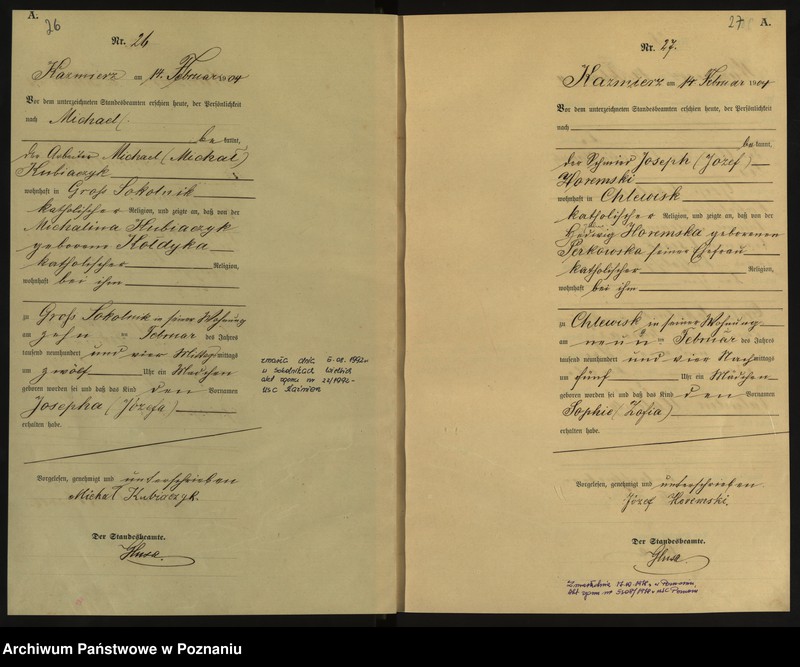 A.
26
Nr. 26
Kazmierz am 14. Februar 1904
Vor dem unterzeichneten Standesbeamten erschien heute, der Persönlichkeit
nach Michael (
be kannt,
der Arbeiter Michael (Michał)
Kubiaczyk
wohnhaft in Gross Sokolnik
katholischer Religion, und zeigte an, daß von der
Michalina Kubiaczyk
geborenen Kołdyka
katholischer Religion,
wohnhaft bei ihm
zu Gross Sokolnik in seiner Wohnung
am zehn ten Februar des Jahres
tausend neunhundert und vier Mittags mittags
um zwölf Uhr ein Mädchen
geboren worden sei und daß das Kind den Vornamen
Josepha (Józefa)
erhalten habe.
Vorgelesen, genehmigt und unterschrieben
Michał Kubiaczyk
Der Standesbeamte.
zmarła dnia 6.08.1992r
w Sokolnikach Wielkich
akt zgonu nr
USC Kaźmierz
27 A.
Nr. 27.
Kazmierz am 14 Februar 1904
Vor dem unterzeichneten Standesbeamten erschien heute, der Persönlichkeit
nach
be kannt,
der Schmied Joseph (Józef)
Horemski
wohnhaft in Chlewisk
katholischer Religion, und zeigte an, daß von der
Hedwig Horemska geborenen
Perkowska seiner Ehefrau
katholischer Religion,
wohnhaft bei ihm
zu Chlewisk in seiner Wohnung
am neun ten Februar des Jahres
tausend neunhundert und vier Nach mittags
um fünf Uhr ein Mädchen
geboren worden sei und daß das Kind den Vornamen
Sophie (Zofia)
erhalten habe.
Vorgelesen, genehmigt und unterschrieben.
Józef Horemski.
Der Standesbeamte.
akt zgonu nr USC Poznań
Archiwum Państwowe w Poznaniu